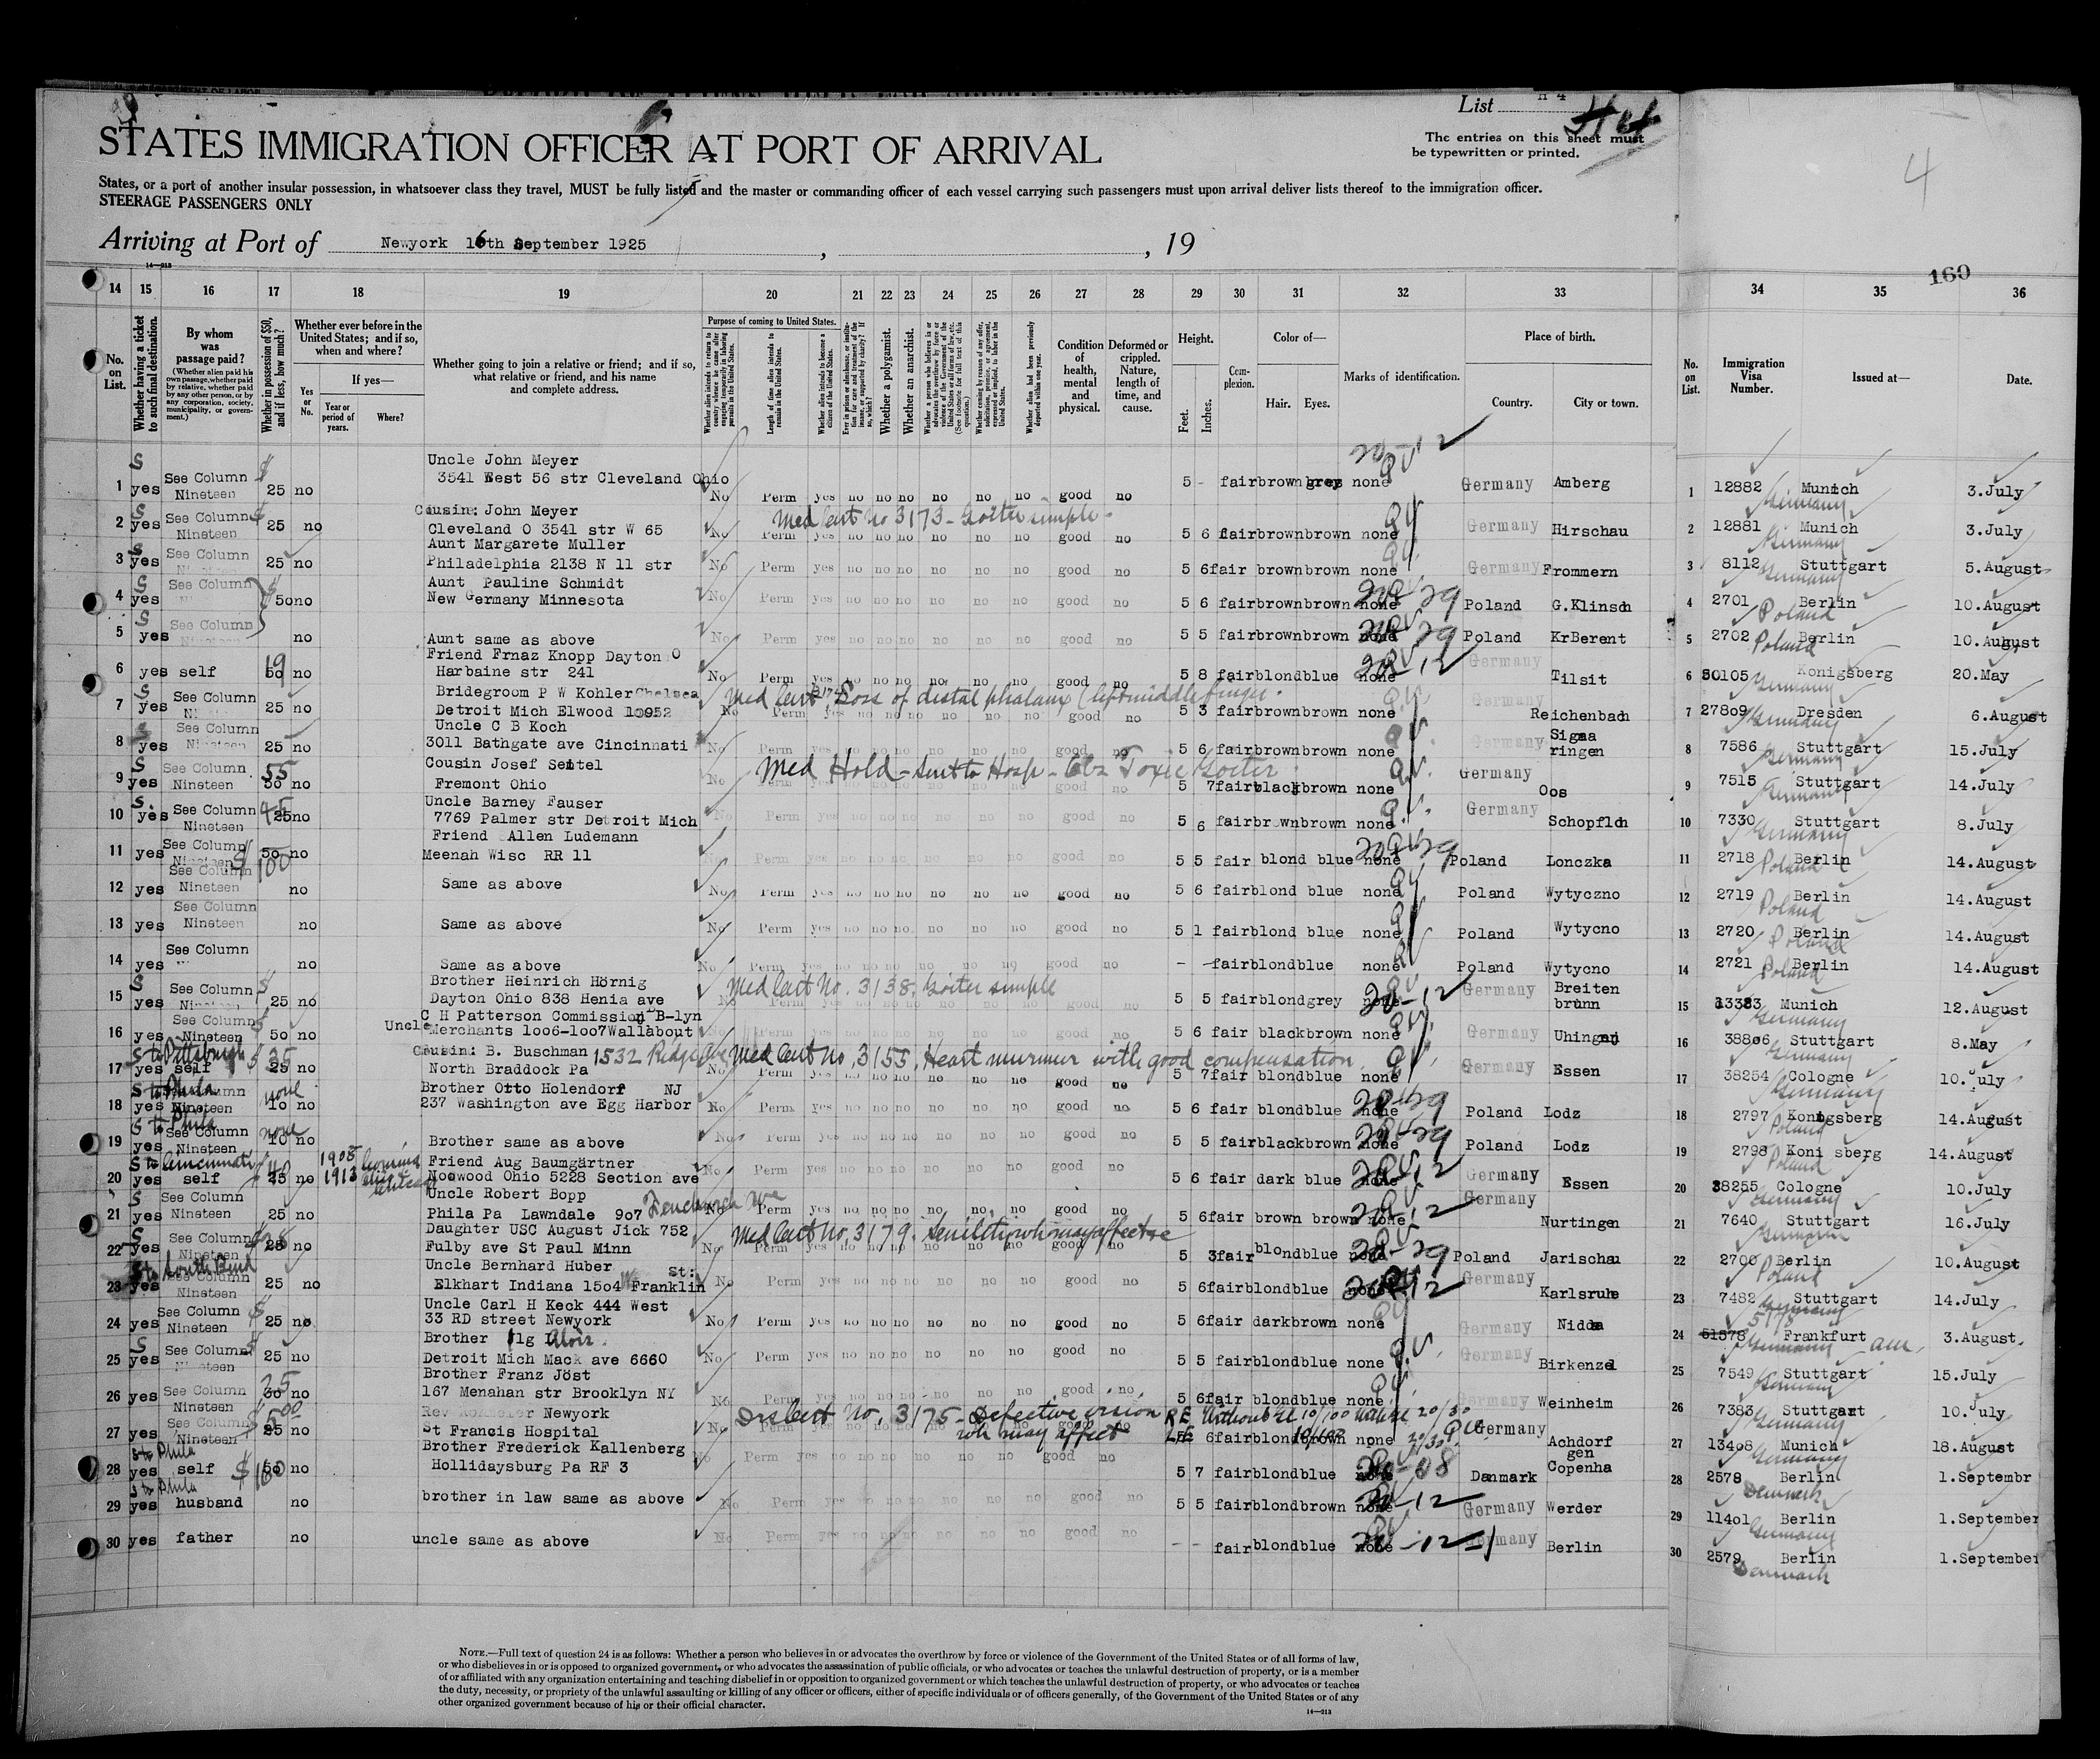 List A 4
The entries on this sheet must
be typewritten or printed.
STATES IMMIGRATION OFFICER AT PORT OF ARRIVAL
States, or a port of another insular possession, in whatsoever class they travel, MUST be fully listed and the master or commanding officer of each vessel carrying such passengers must upon arrival deliver lists thereof to the immigration officer.
STEERAGE PASSENGERS ONLY
4
Arriving at Port of Newyork 16th September 1925, , 19
14—213
160
14 15 16 17 18 19 20 21 22 23 24 25 26 27 28 29 30 31 32 33 34 35 36
No. on List.
Whether having a ticket to such final destination.
By whom was passage paid?
(Whether alien paid his own passage, whether paid by relative, whether paid by any other person, or by any corporation, society, municipality, or government.)
Whether in possession of $50, and if less, how much?
Whether ever before in the United States; and if so, when and where?
Yes or No.
If yes—
Year or period of years.
Where?
Whether going to join a relative or friend; and if so, what relative or friend, and his name and complete address.
Purpose of coming to United States.
Length of time alien intends to remain in the United States.
Whether alien intends to become a citizen of the United States.
Whether a polygamist.
Whether an anarchist.
Whether alien had been previously deported within one year.
Condition of health, mental and physical.
Deformed or crippled. Nature, length of time, and cause.
Height.
Feet. Inches.
Complexion.
Color of—
Hair. Eyes.
Marks of identification.
Place of birth.
Country. City or town.
No. on List.
Immigration Visa Number.
Issued at—
Date.
Uncle John Meyer
1 yes See Column Nineteen 25 no 3541 West 56 str Cleveland Ohio No Perm yes no no no no no no good no 5 - fair brown grey none Germany Amberg 1 12882 Munich Germany 3.July
Cousin: John Meyer Med Cert No 3173 - Goiter simple
2 yes See Column Nineteen 25 no Cleveland O 3541 str W 65 No Perm yes no no no no no no good no 5 6 fair brown brown none Germany Hirschau 2 12881 Munich Germany 3.July
Aunt Margarete Muller
3 yes See Column 25 no Philadelphia 2138 N 11 str No Perm yes no no no no no no good no 5 6 fair brown brown none Germany Frommern 3 8112 Stuttgart Germany 5.August
Aunt Pauline Schmidt
4 yes See Column 50 no New Germany Minnesota No Perm yes no no no no no no good no 5 6 fair brown brown none Poland G.Klinsch 4 2701 Berlin Poland 10.August
5 yes See Column no Aunt same as above No Perm yes no no no no no no good no 5 5 fair brown brown none Poland KrBerent 5 2702 Berlin Poland 10.August
Friend Frnaz Knopp Dayton O
6 yes self 50 19 no Harbaine str 241 No Perm yes no no no no no no good no 5 8 fair blond blue none Germany Tilsit 6 50105 Konigsberg Germany 20.May
Bridegroom P W Kohler Chelsea Med Cert 3174 Loss of distal phalanx (left middle finger.
7 yes See Column 25 no Detroit Mich Elwood 10952 No Perm yes no no no no no no good no 5 3 fair brown brown none Germany Reichenbach 7 27809 Dresden Germany 6.August
Uncle C B Koch
8 yes See Column Nineteen 25 no 3011 Bathgate ave Cincinnati No Perm yes no no no no no no good no 5 6 fair brown brown none Germany Sigmaringen 8 7586 Stuttgart Germany 15.July
Cousin Josef Seitel Med Hold - Sent to Hosp - Obs Toxic Goiter
9 yes See Column Nineteen 50 55 no Fremont Ohio No Perm yes no no no no no no good no 5 7 fair black brown none Germany Oos 9 7515 Stuttgart Germany 14.July
Uncle Barney Fauser
10 yes See Column Nineteen 25 45 no 7769 Palmer str Detroit Mich No Perm yes no no no no no no good no 5 6 fair brown brown none Germany Schopfloh 10 7330 Stuttgart Germany 8.July
Friend Allen Ludemann
11 yes See Column Nineteen 50 $100 no Meenah Wisc RR 11 No Perm yes no no no no no no good no 5 5 fair blond blue none Poland Lonczka 11 2718 Berlin Poland 14.August
12 yes See Column Nineteen no Same as above No Perm yes no no no no no no good no 5 6 fair blond blue none Poland Wytyczno 12 2719 Berlin Poland 14.August
13 yes See Column Nineteen no Same as above No Perm yes no no no no no no good no 5 1 fair blond blue none Poland Wytycno 13 2720 Berlin Poland 14.August
14 yes See Column no Same as above No Perm yes no no no no no no good no - - fair blond blue none Poland Wytycno 14 2721 Berlin Poland 14.August
Brother Heinrich Hörnig Med Cert No. 3138, Goiter simple
15 yes See Column Nineteen 25 no Dayton Ohio 838 Henia ave No Perm yes no no no no no no good no 5 5 fair blond grey none 20-12 Germany Breitenbrunn 15 13383 Munich Germany 12.August
C H Patterson Commission B-lyn
16 yes See Column Nineteen 50 no Uncle Merchants 1006-1007 Wallabout No Perm yes no no no no no no good no 5 6 fair black brown none Germany Uhingen 16 38806 Stuttgart Germany 8.May
S to Pittsburgh $35 Cousin: B. Buschman 1532 Ridge Ave Med Cert No. 3155, Heart murmur with good compensation
17 yes self 25 no North Braddock Pa No Perm yes no no no no no no good no 5 7 fair blond blue none Germany Essen 17 38254 Cologne Germany 10.July
S to Phila none Brother Otto Holendorf NJ
18 yes See Column Nineteen 10 no 237 Washington ave Egg Harbor No Perm yes no no no no no no good no 5 6 fair blond blue none Poland Lodz 18 2797 Konigsberg Poland 14.August
S to Phila none
19 yes See Column Nineteen 10 no Brother same as above No Perm yes no no no no no no good no 5 5 fair black brown none Poland Lodz 19 2798 Koni sberg Poland 14.August
S to Cincinnati 1908 1913 Friend Aug Baumgärtner
20 yes self 25 no Noowood Ohio 5228 Section ave No Perm yes no no no no no no good no 5 6 fair dark blue none Germany Essen 20 38255 Cologne Germany 10.July
Uncle Robert Bopp
21 yes See Column Nineteen 25 no Phila Pa Lawndale 907 Fenchurch Ave No Perm yes no no no no no no good no 5 6 fair brown brown none 20-12 Germany Nurtingen 21 7640 Stuttgart Germany 16.July
Daughter USC August Jick 752 Med Cert No. 3179. Senility wh may affect
22 yes See Column Nineteen 25 no Fulby ave St Paul Minn No Perm yes no no no no no no good no 5 3 fair blond blue none Poland Jarischau 22 2700 Berlin Poland 10.August
S to South Bend Uncle Bernhard Huber St:
23 yes See Column Nineteen 25 no Elkhart Indiana 1504 W Franklin No Perm yes no no no no no no good no 5 6 fair blond blue none Germany Karlsruhe 23 7482 Stuttgart Germany 14.July
Uncle Carl H Keck 444 West
24 yes See Column Nineteen $25 no 33 RD street Newyork No Perm yes no no no no no no good no 5 6 fair dark brown none Germany Nidda 24 51578 5178 Frankfurt am Germany 3.August
Brother Alois
25 yes See Column 25 no Detroit Mich Mack ave 6660 No Perm yes no no no no no no good no 5 5 fair blond blue none Germany Birkenzel 25 7549 Stuttgart Germany 15.July
Brother Franz Jöst
26 yes See Column Nineteen 30 25 no 167 Menahan str Brooklyn NY No Perm yes no no no no no no good no 5 6 fair blond blue none Germany Weinheim 26 7383 Stuttgart Germany 10.July
Rev Newyork Cert No. 3175 - Defective vision wh may affect RE without gl 10/100 with gl 20/30
27 yes See Column Nineteen 25 $500 no St Francis Hospital No Perm yes no no no no no no good no 5 6 fair blond brown none Germany Achdorf 27 13408 Munich Germany 18.August
S to Phila Brother Frederick Kallenberg
28 yes self 50 $160 no Hollidaysburg Pa RF 3 No Perm yes no no no no no no good no 5 7 fair blond blue none Danmark Copenhagen 28 2578 Berlin Denmark 1.Septembr
S to Phila
29 yes husband no brother in law same as above No Perm yes no no no no no no good no 5 5 fair blond brown none 20-12 Germany Werder 29 11401 Berlin Germany 1.September
30 yes father no uncle same as above No Perm yes no no no no no no good no - - fair blond blue none Germany Berlin 30 2579 Berlin Denmark 1.September
NOTE.—Full text of question 24 is as follows: Whether a person who believes in or advocates the overthrow by force or violence of the Government of the United States or of all forms of law,
or who disbelieves in or is opposed to organized government, or who advocates the assassination of public officials, or who advocates or teaches the unlawful destruction of property, or is a member
of or affiliated with any organization entertaining and teaching disbelief in or opposition to organized government or which teaches the unlawful destruction of property, or who advocates or teaches
the duty, necessity, or propriety of the unlawful assaulting or killing of any officer or officers, either of specific individuals or of officers generally, of the Government of the United States or of any
other organized government because of his or their official character.
14—213